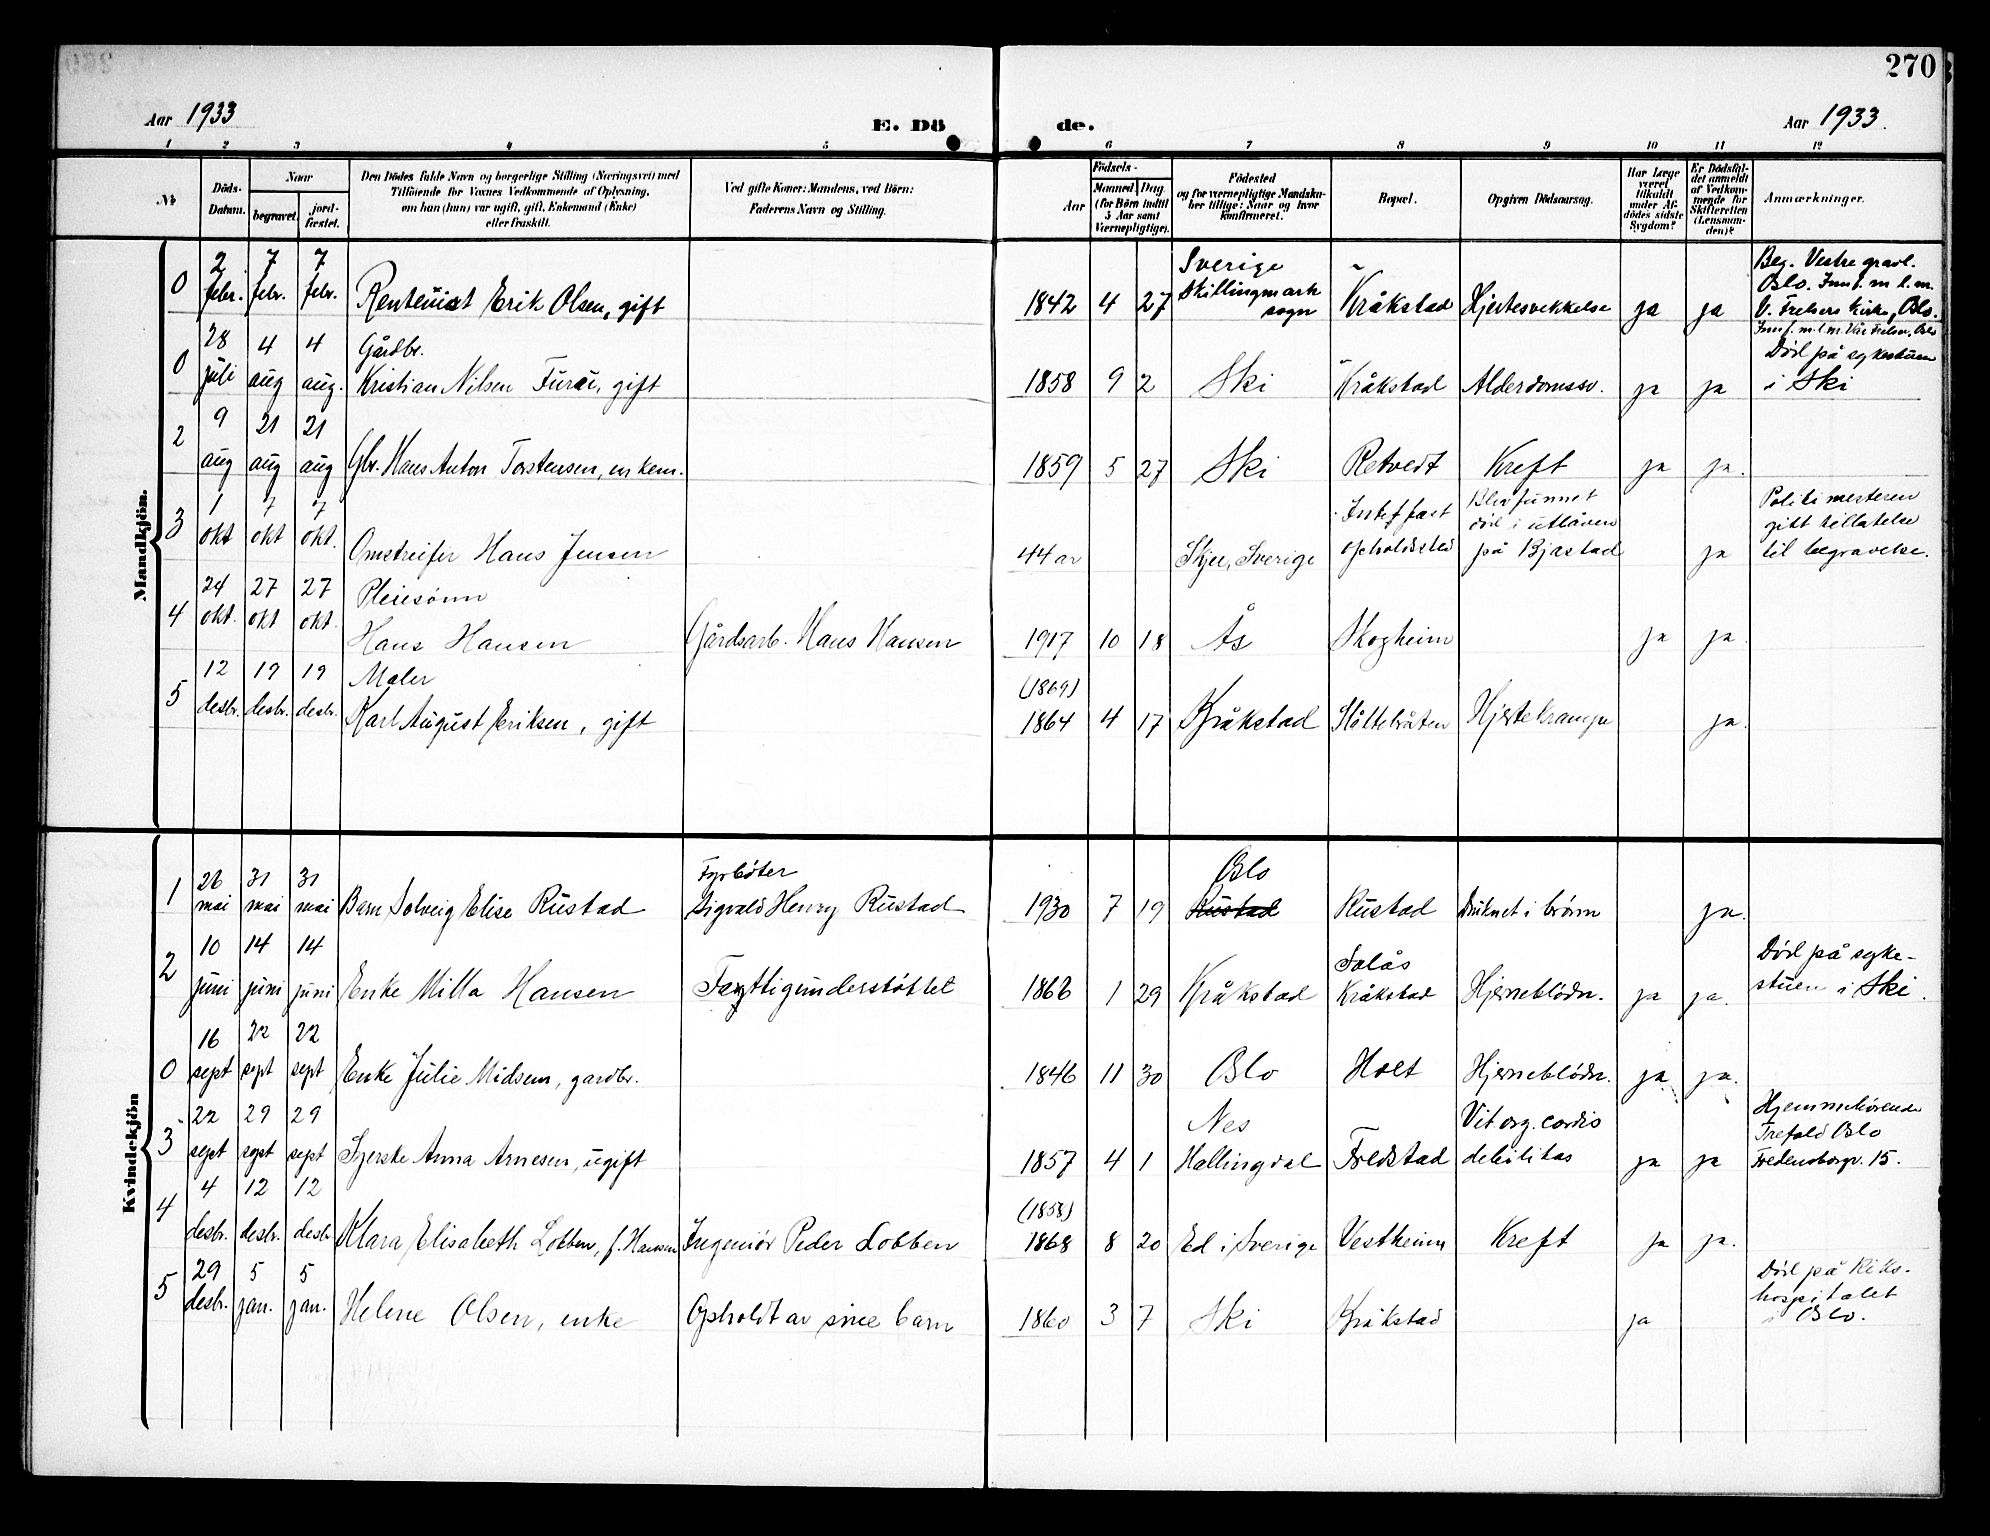 270
Aar 1933
E. Dö
de.
Aar 1933.
1 2 3 4 5 6 7 8 9 10 11 12
№
Döds-
Datum.
Naar
begravet.
jord-
fæstet.
Den Dödes fulde Navn og borgerlige Stilling (Næringsvei) med
Tilföiende for Voxnes Vedkommende af Oplysning,
om han (hun) var ugift, gift, Enkemand (Enke)
eller fraskilt.
Ved gifte Koner: Mandens, ved Börn:
Faderens Navn og Stilling.
Födsels-
Aar
Maaned
Dag
(for Börn indtil
5 Aar samt
Værnepligtige).
Födested
og for værnepligtige Mandska-
ber tillige: Naar og hvor
konfirmeret.
Bopæl.
Opgiven Dödsaarsag.
Har Læge
været
tilkaldt
under Af-
dödes sidste
Sygdom?
Er Dödsfal-
det anmeldt
af Vedkom-
mende for
Skifteretten
(Lensman-
den)?
Anmærkninger.
Mandkjön.
0
2 febr.
7 febr.
7 febr.
Rentenist Erik Olsen, gift
1842 4 27
Sverige
Skillingmark
sogn
Kråkstad
Hjertesvekkelse
ja
ja
Beg. Vestre gravl.
Oslo. Innf. m l. m.
V. Frelsers Kirke, Oslo.
0
28 juli
4 aug
4 aug.
Gårdbr.
Kristian Nilsen Furu, gift
1858 9 2
Ski
Kråkstad
Alderdomssv.
ja
ja
Innf. m. l. m. Vår Frelser, Oslo
Död på sykestuen
i Ski
2
9 aug
21 aug
21 aug
Gbr. Hans Anton Torstensen, enkem.
1859 5 27
Ski
Retvedt
Kreft
ja
ja.
3
1 okt
7 okt
7 okt.
Omstreifer Hans Jensen
44 år
Skjee, Sverige
Intet fast
opholdssted
Blev funnet
död i utlåven
på Bjastad
ja
Politimesteren
gitt tillatelse
til begravelse.
4
24 okt.
27 okt
27 okt.
Pleiesönn
Hans Hansen
Gårdsarb. Hans Hansen
1917 10 18
Ås
Skogheim
ja
ja.
5
12 desbr.
19 desbr.
19 desbr.
Maler
Karl August Eriksen, gift
(1869)
1864 4 17
Kråkstad
Slåttebråten
Hjertekrampe
ja.
Kvindekjön
1
26 mai
31 mai
31 mai
Barn Solveig Elise Rustad
Fyrböter
Sigvald Henry Rustad
1930 7 19
Oslo
Rustad
Rustad
Druknet i brönn
ja.
2
10 juni
14 juni
14 juni
Enke Milla Hansen
Fattigunderstöttet
1866 1 29
Kråkstad
Solås
Kråkstad
Hjerneblödn.
ja
ja.
Död på syke-
stuen i Ski.
0
16 sept
22 sept
22 sept
Enke Julie Midsem, gardbr.
1846 11 30
Oslo
Holt
Hjerneblödn.
ja.
ja.
3
22 sept
29 sept
29 sept
Syerske Anna Arnesen, ugift
1857 4 1
Nes
Hallingdal
Fredstad
Vit. org. cordis
debilitas
ja
ja
Hjemmehörende
Trefold. Oslo
Fredensborgv. 15.
4
4 desbr.
12 desbr.
12 desbr
Klara Elisabeth Lobben, f. Hansen
Ingeniör Peder Lobben
(1858)
1868 8 20
Ed i Sverige
Vestheim
Kreft
ja
ja.
5
29 desbr.
5 jan.
5 jan.
Helene Olsen, enke
Opholdt av sine barn
1860 3 7
Ski
Kråkstad
ja
Död på Riks-
hospitalet
i Oslo.